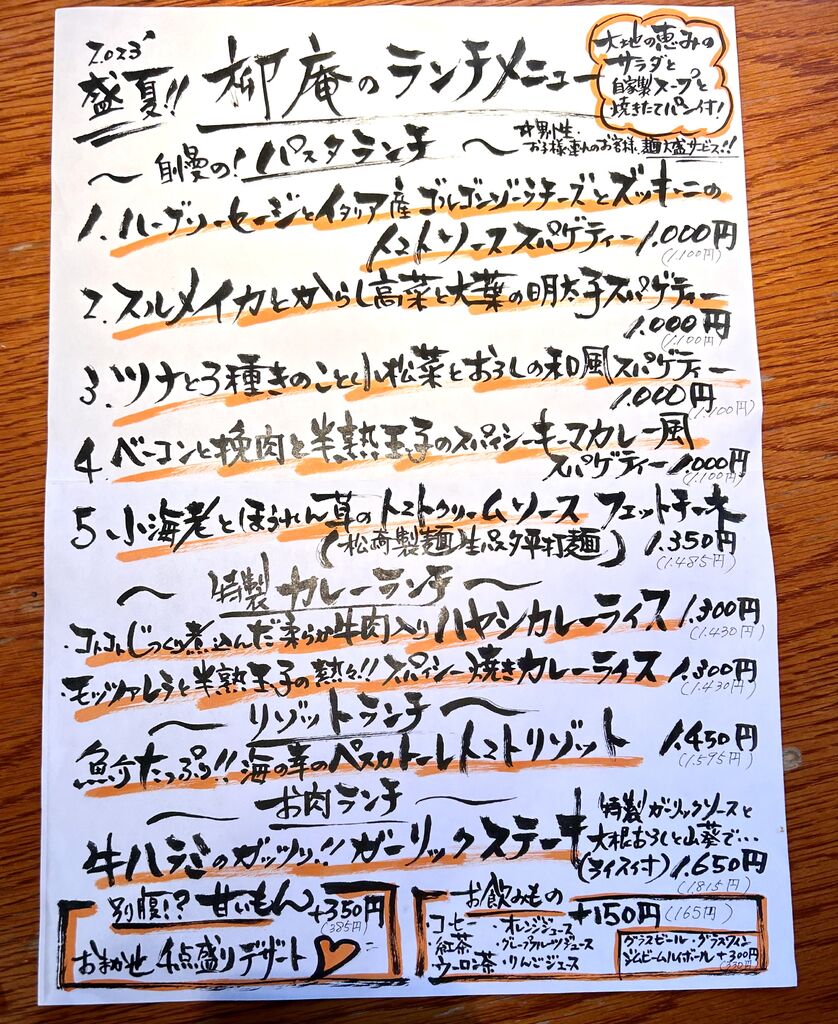 2023
盛夏!! 柳庵のランチメニュー
大地の恵みの
サラダと
自家製スープと
焼きたてパン付!
〜 自慢の! パスタランチ 〜
☆男性・
お子様連れのお客様、麺大盛サービス!!
1. ハーブソーセージとイタリア産ゴルゴンゾーラチーズとズッキーニの
トマトソーススパゲティー 1.000円
(1.100円)
2. スルメイカとからし高菜と大葉の明太子スパゲティー
1.000円
(1.100円)
3. ツナと3種きのこと小松菜とおろしの和風スパゲティー
1.000円
(1.100円)
4. ベーコンと挽肉と半熟玉子のスパイシーキーマカレー風
スパゲティー 1.000円
(1.100円)
5. 小海老とほうれん草のトマトクリームソース フェットチーネ
(松商製麺 生パスタ平打麺) 1.350円
(1.485円)
〜 特製 カレーランチ 〜
・コトコトじっくり煮込んだ柔らか牛肉入りハヤシカレーライス 1.300円
(1.430円)
・モッツァレラと半熟玉子の熱々!! スパイシー焼きカレーライス 1.300円
(1.430円)
〜 リゾットランチ 〜
魚介たっぷり!! 海の幸のペスカトーレトマトリゾット 1.450円
(1.595円)
〜 お肉ランチ 〜
牛ハラミのガッツリ!! ガーリックステーキ
特製ガーリックソースと
大根おろしと山葵で…
(ライス付) 1.650円
(1.815円)
別腹!? 甘いもん +350円
(385円)
おまかせ 4点盛りデザート
お飲みもの +150円 (165円)
・コーヒー ・オレンジジュース
・紅茶 ・グレープフルーツジュース
・ウーロン茶 ・りんごジュース
グラスビール・グラスワイン
ジムビームハイボール +300円
(330円)